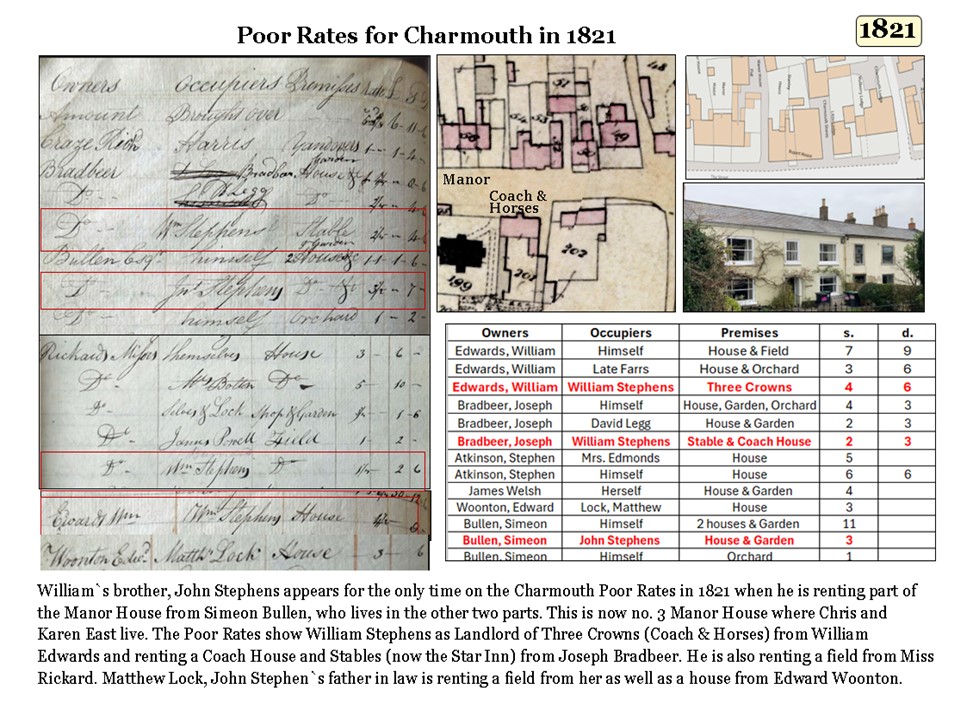 Poor Rates for Charmouth in 1821
1821
Owners Occupiers Premises
Amount Brought over
Harris
Bradbeer Bradbeer House &
Do Legg Do
Do Wm Stephens Stable
& Garden
Bullen Esqr himself 2 Houses &c
Do Jno Stephens Do
Do himself Orchard 1 - 2 -
Richards Misses themselves House 3 - 6 -
Do Mrs Do 5 10 -
Do & Lock Shop & Garden 1-6
Do James Powell Field 1 - 2 -
Do Wm Stephens Do 2 6
Edwards Wm Wm Stephens House
Woonton Edwd Matthw Lock House 3 - 6
Manor
Coach &
Horses
48
57
54
53
199
201
202
Owners Occupiers Premises s. d.
Edwards, William Himself House & Field 7 9
Edwards, William Late Farrs House & Orchard 3 6
Edwards, William William Stephens Three Crowns 4 6
Bradbeer, Joseph Himself House, Garden, Orchard 4 3
Bradbeer, Joseph David Legg House & Garden 2 3
Bradbeer, Joseph William Stephens Stable & Coach House 2 3
Atkinson, Stephen Mrs. Edmonds House 5
Atkinson, Stephen Himself House 6 6
James Welsh Herself House & Garden 4
Woonton, Edward Lock, Matthew House 3
Bullen, Simeon Himself 2 houses & Garden 11
Bullen, Simeon John Stephens House & Garden 3
Bullen, Simeon Himself Orchard 1
William`s brother, John Stephens appears for the only time on the Charmouth Poor Rates in 1821 when he is renting part of
the Manor House from Simeon Bullen, who lives in the other two parts. This is now no. 3 Manor House where Chris and
Karen East live. The Poor Rates show William Stephens as Landlord of Three Crowns (Coach & Horses) from William
Edwards and renting a Coach House and Stables (now the Star Inn) from Joseph Bradbeer. He is also renting a field from Miss
Rickard. Matthew Lock, John Stephen`s father in law is renting a field from her as well as a house from Edward Woonton.